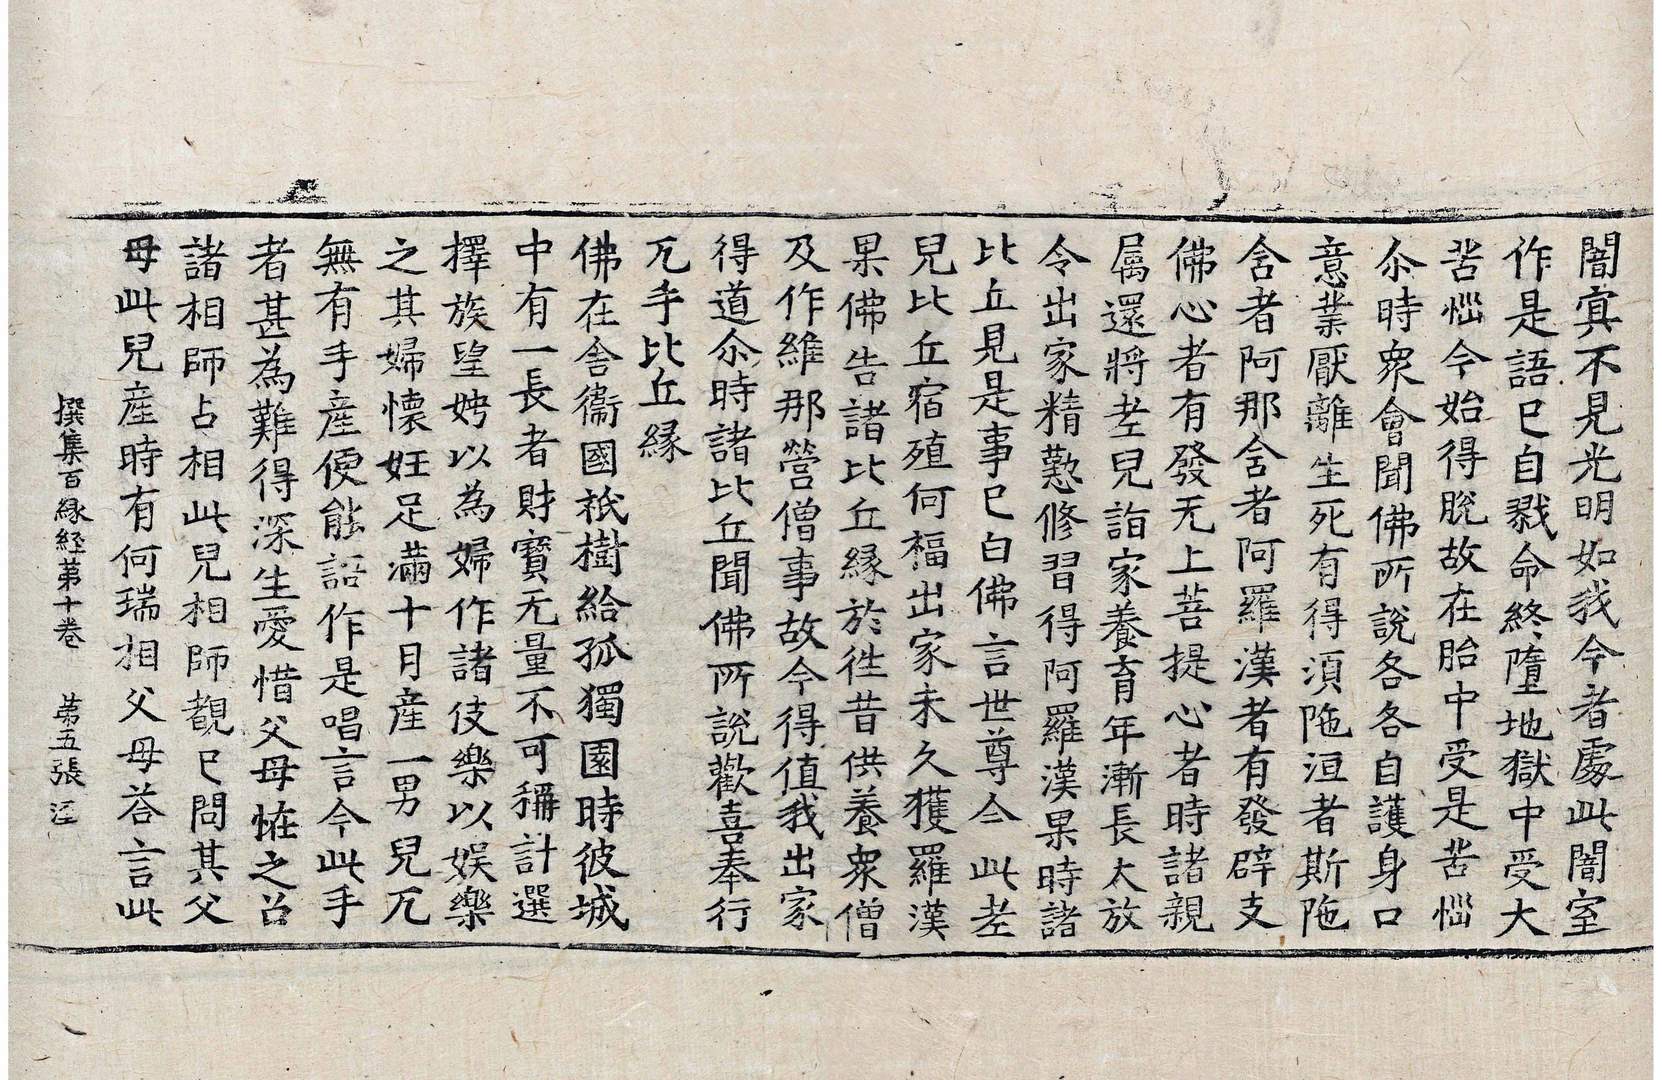 闇冥不見光明如我今者處此闇室
作是語已自戮命終墮地獄中受大
苦惱今始得脫故在胎中受是苦惱
尒時衆會聞佛所說各各自護身口
意業厭離生死有得須陁洹者斯陁
含者阿那含者阿羅漢者有發辟支
佛心者有發无上菩提心者時諸親
属還將老兒詣家養育年漸長大放
令出家精懃修習得阿羅漢果時諸
比丘見是事已白佛言世尊今此老
兒比丘宿殖何福出家未久獲羅漢
果佛告諸比丘緣於徃昔供養衆僧
及作維那營僧事故今得值我出家
得道尒時諸比丘聞佛所說歡喜奉行
兀手比丘緣
佛在舍衞國祇樹給孤獨園時彼城
中有一長者財寶无量不可稱計選
擇族望娉以為婦作諸伎樂以娛樂
之其婦懷妊足滿十月產一男兒兀
無有手產便能語作是唱言今此手
者甚為難得深生愛惜父母恠之召
諸相師占相此兒相師覩已問其父
母此兒產時有何瑞相父母荅言此
撰集百緣経第十卷　第五張